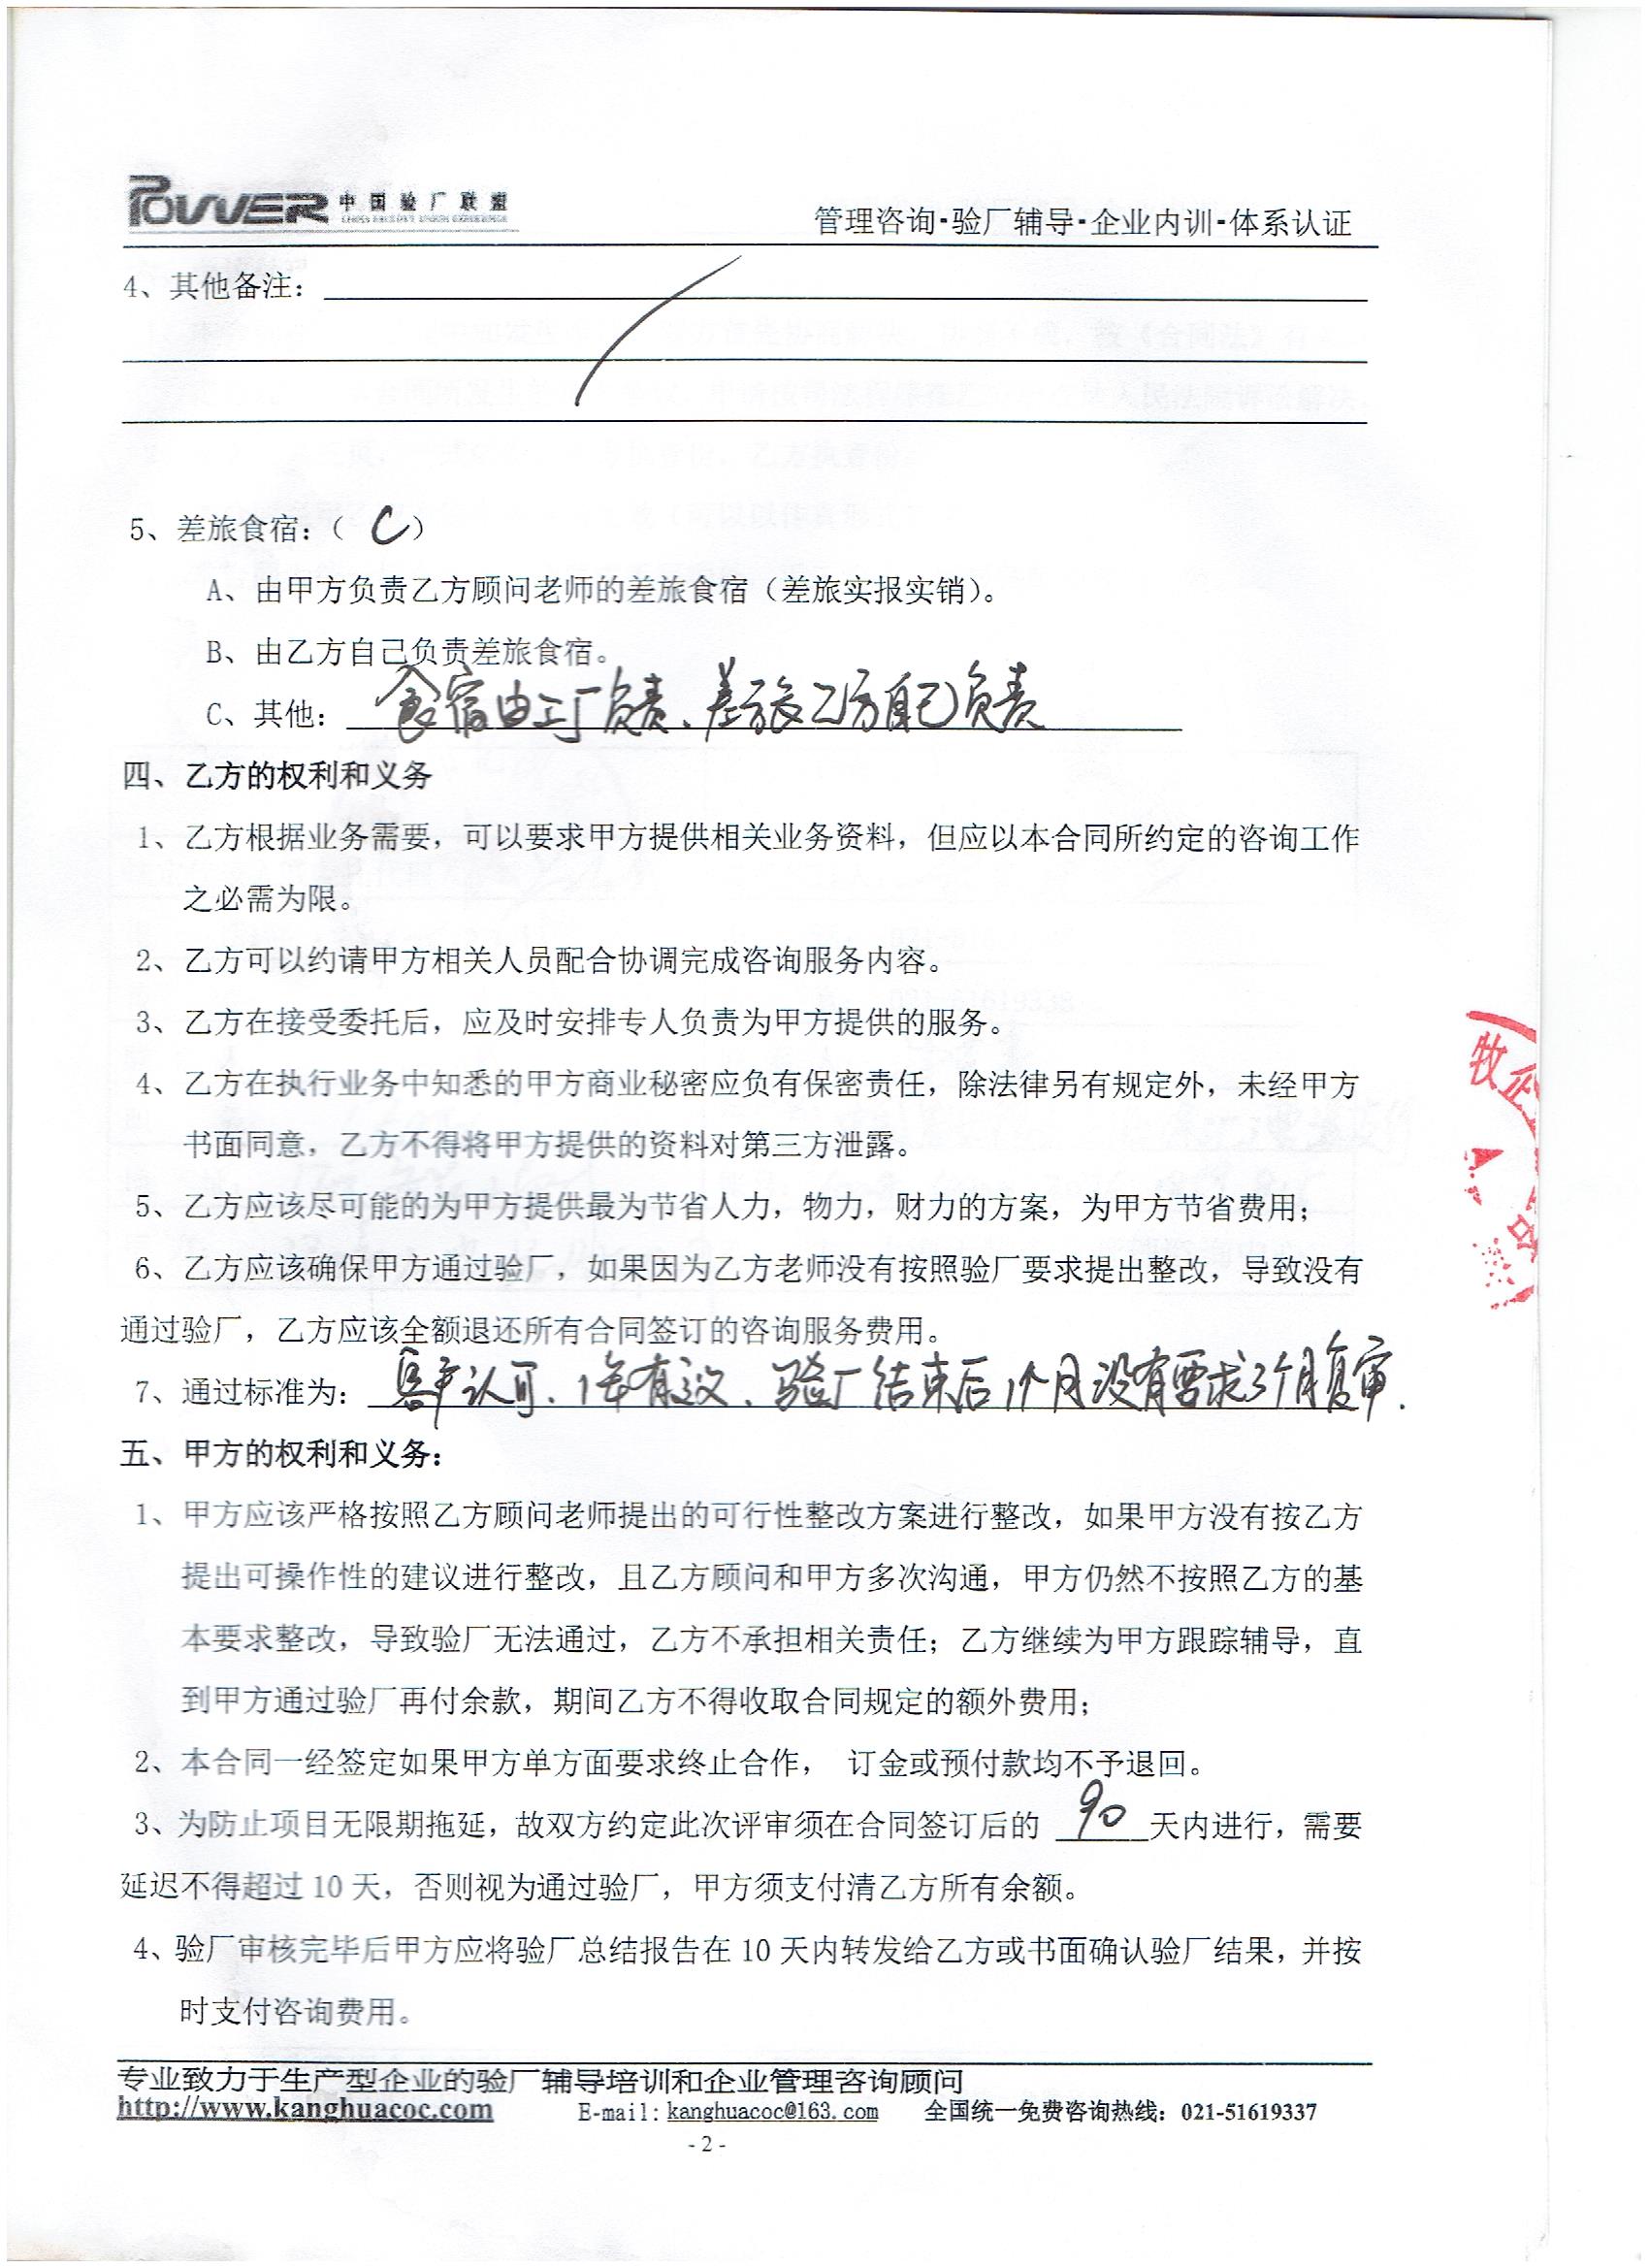 POWER 中国验厂联盟
管理咨询·验厂辅导·企业内训·体系认证
4、其他备注:
5、差旅食宿:( C )
A、由甲方负责乙方顾问老师的差旅食宿(差旅实报实销)。
B、由乙方自己负责差旅食宿。
C、其他: 食宿由工厂负责、差旅乙方自己负责
四、乙方的权利和义务
1、乙方根据业务需要,可以要求甲方提供相关业务资料,但应以本合同所约定的咨询工作
之必需为限。
2、乙方可以约请甲方相关人员配合协调完成咨询服务内容。
3、乙方在接受委托后,应及时安排专人负责为甲方提供的服务。
4、乙方在执行业务中知悉的甲方商业秘密应负有保密责任,除法律另有规定外,未经甲方
书面同意,乙方不得将甲方提供的资料对第三方泄露。
5、乙方应该尽可能的为甲方提供最为节省人力,物力,财力的方案,为甲方节省费用;
6、乙方应该确保甲方通过验厂,如果因为乙方老师没有按照验厂要求提出整改,导致没有
通过验厂,乙方应该全额退还所有合同签订的咨询服务费用。
7、通过标准为: 客户认可、1年有效、验厂结束后1个月没有要求3个月复审.
五、甲方的权利和义务:
1、甲方应该严格按照乙方顾问老师提出的可行性整改方案进行整改,如果甲方没有按乙方
提出可操作性的建议进行整改,且乙方顾问和甲方多次沟通,甲方仍然不按照乙方的基
本要求整改,导致验厂无法通过,乙方不承担相关责任;乙方继续为甲方跟踪辅导,直
到甲方通过验厂再付余款,期间乙方不得收取合同规定的额外费用;
2、本合同一经签定如果甲方单方面要求终止合作, 订金或预付款均不予退回。
3、为防止项目无限期拖延,故双方约定此次评审须在合同签订后的 90 天内进行,需要
延迟不得超过10天,否则视为通过验厂,甲方须支付清乙方所有余额。
4、验厂审核完毕后甲方应将验厂总结报告在10天内转发给乙方或书面确认验厂结果,并按
时支付咨询费用。
专业致力于生产型企业的验厂辅导培训和企业管理咨询顾问
http://www.kanghuacoc.com E-mail:kanghuacoc@163.com 全国统一免费咨询热线:021-51619337
- 2 -